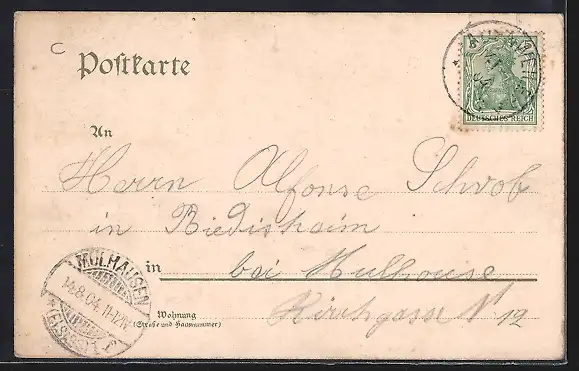 C
Postkarte
DEUTSCHES REICH
An
Herrn Alfonse Schwob
in Riedisheim
in bei Mulhouse
Kirchgasse N 12
Wohnung
(Straße und Hausnummer)
MÜLHAUSEN
14.8.04. 11-12
(ELSASS)